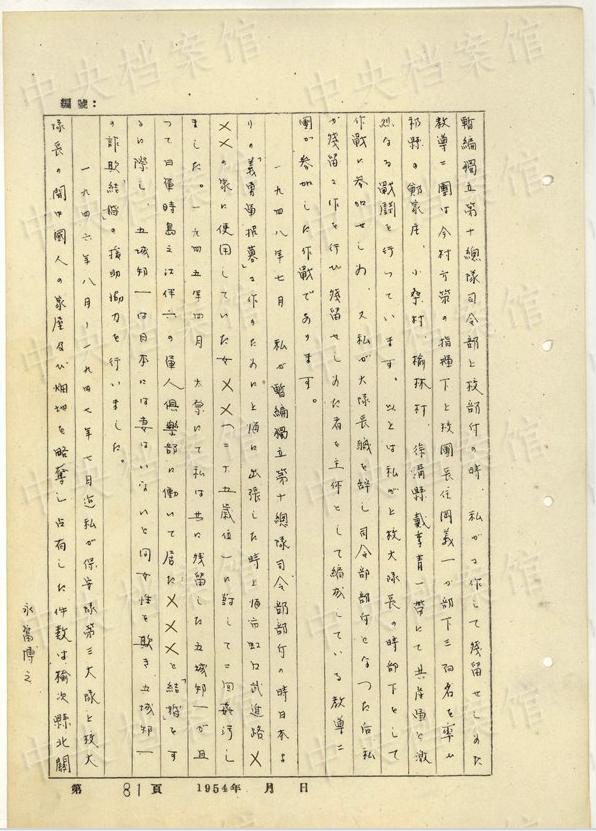 編號：
暫編獨立第十總隊司令部上校部付の時、私が工作して残留せしめた
教導二團は今村方策の指揮下上校團長住岡義一が部下三百名を率ゐ
祁縣の　家庄、小　村、榆林村、徐溝縣戴李青一帶にて共産軍と激
烈なる戰闘を行つています。以上は私が上校大隊長の時部下として
作戰に参加せしめ、又私が大隊長職を辞し司令部部付となつた后私
が残留工作を行ひ残留せしめた者を主体として編成している教導二
團が参加した作戰であります。
一九四八年七月　私が暫編獨立第十總隊司令部部付の時日本よ
りの「義勇軍招募」工作のために上海に出張した時上海市虹口武進路×
××の家に使用していた女××（二十五歳位）に對して二回姦汚し
ました。一九四五年四月　太原にて私は共に残留した五城知一が且
つて日軍時島之江伴六の軍人俱樂部に働いて居た×××と「結婚」をす
るに際し、五城知一は日本には妻はいないと同女性を欺き五城知一
の詐欺結婚の援助協力を行いました。
一九四六年八月～一九四七年七月迄私が保安隊第三大隊上校大
隊長の間中國人の家屋及び畑地を略奪し占有した件数は榆次縣北關
永富博之
第　81頁　1954年　月　日
中央档案馆